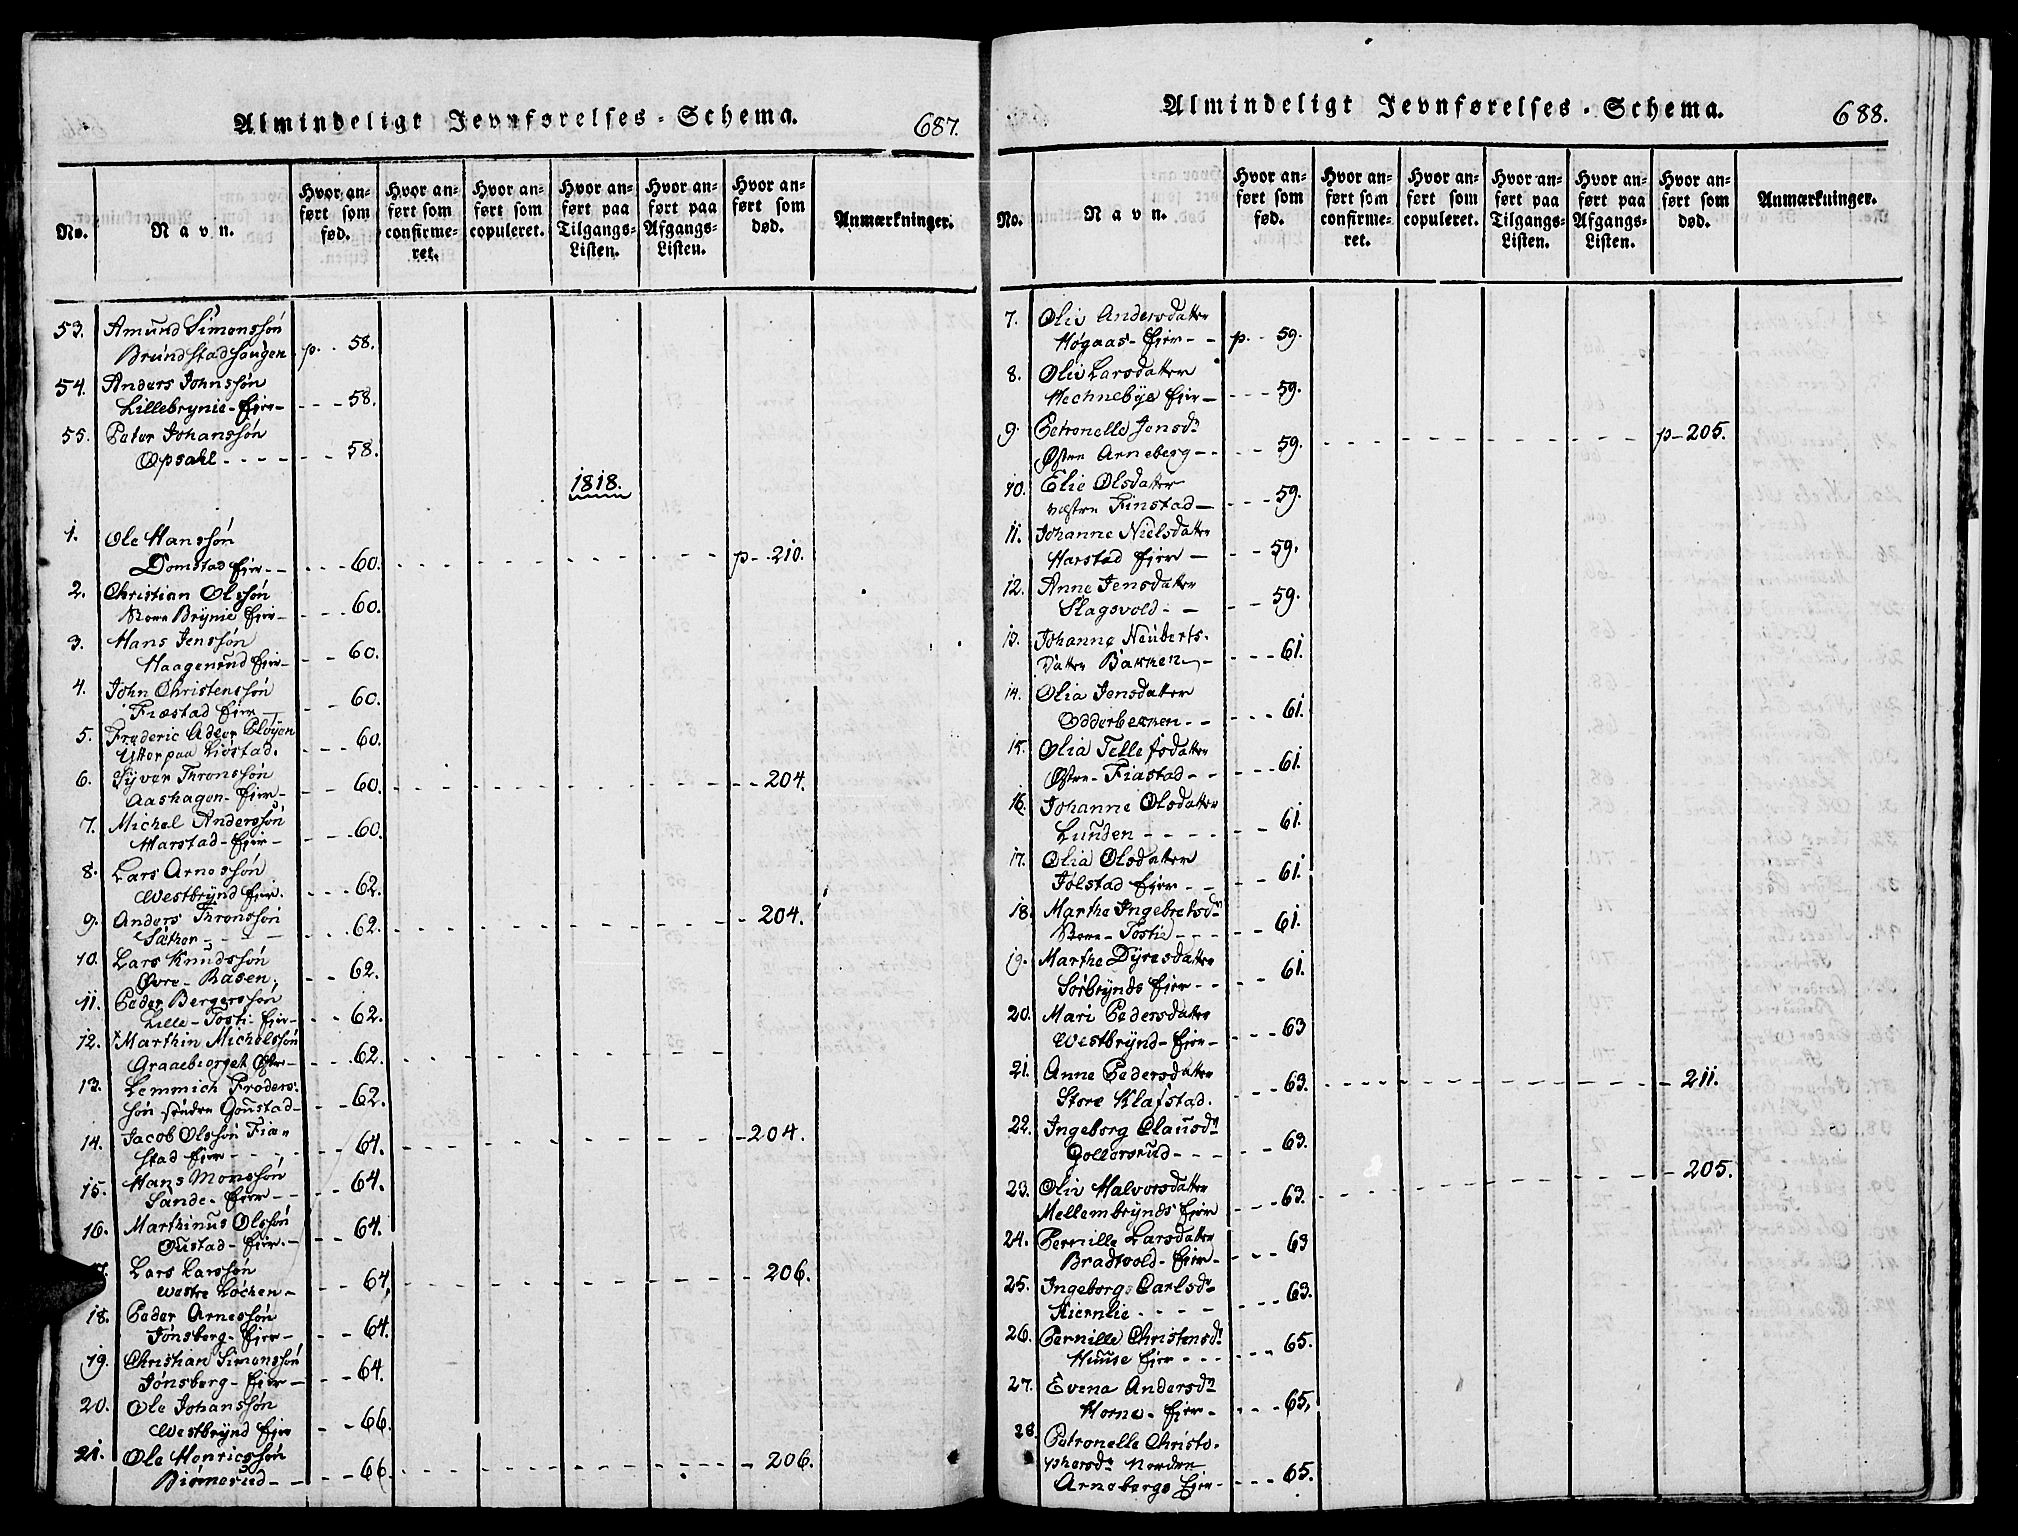 Almindeligt Jevnførelses-Schema.
687.
No.
Navn.
Hvor an-
ført som
fød.
Hvor an-
ført som
confirme-
ret.
Hvor an-
ført som
copuleret.
Hvor an-
ført paa
Tilgangs-
Listen.
Hvor an-
ført paa
Afgangs-
Listen.
Hvor an-
ført som
død.
Anmærkninger.
53. Amund Simonssøn
Brundstadhaugen p. . 58.
54. Anders Johnssøn
Lillebrynie-Ejer - - - 58.
55. Peter Johanssøn
Opsahl - - - - - - 58.
1818.
1. Ole Hanssøn
Domstad Ejer - - - - - 60. p - - 210.
2. Christian Olssøn
Store Brynie Ejer - - - - 60.
3. Hans Jenssøn
Haagenrud Ejer - - - 60.
4. John Christenssøn
Fiæstad Ejer - - - 60.
5. Frederic Adeer Pløyen
Ytterpaa Liøstad. - - - 60.
6. Syver Thronssøn
Aashagen-Ejer - - - 60. - - 204.
7. Michel Anderssøn
Harstad-Ejer - - - 60.
8. Lars Arnessøn
Westbrynd Ejer. - - - 62.
9. Anders Thronssøn
Sæther - - - - - 62. - 204.
10. Lars Knudssøn
Øvre-Basen. - - 62.
11. Peder Bergerssøn
Lille-Tosti-Ejer - - - 62.
12. Marthin Michelssøn
Graaebierget Østre - - - 62.
13. Lemmich Freders:
søn søndre Goustad - - - 62.
14. Jacob Olssøn Fia-
stad Ejer - - - - 64. - 204.
15. Hans Monssøn
Sande-Ejer - - - 64.
16. Marthinus Olssøn
Oustad-Ejer. - - - 64.
Lars Larssøn
Westre Løchen - - - 64. - 206.
18. Peder Arnessøn
Jønsberg-Ejer - - - 64.
19. Christian Simonssøn
Jønsberg-Ejer - - - 64.
20. Ole Johanssøn
Westbrynd Ejer - - 66.
21. Ole Henricssøn
Biørnerud - - - - 66. - 206.
Almindeligt Jevnførelses-Schema.
688.
No.
Navn.
Hvor an-
ført som
fød.
Hvor an-
ført som
confirme-
ret.
Hvor an-
ført som
copuleret.
Hvor an-
ført paa
Tilgangs-
Listen.
Hvor an-
ført paa
Afgangs-
Listen.
Hvor an-
ført som
død.
Anmærkninger.
7. Oliv Andersdatter
Høgaas-Ejer - - p. - 59.
8. Oliv Larsdatter
Hechnebye Ejer - - - - 59.
9. Petronelle Jensdr
Østre Arneberg - - - - 59. p - 205.
10. Elie Olsdatter
væstre Finstad - - - - 59.
11. Johanne Nielsdatter
Harstad Ejer - - - 59.
12. Anne Jensdatter
Slagsvold - - - - 59.
13. Johanne Neuberts-
Datter Bakken - - - - 61.
14. Olia Jensdatter
Odderbekken - - - - - 61.
15. Olia Tellefsdatter
Østre-Fiastad - - - - - 61.
16. Johanne Olsdatter
Lunden - - - - - - 61.
17. Olia Olsdatter
Jølstad Ejer - - - - 61.
18. Marthe Ingebretsdr
Store-Tostie - - - - - 61.
19. Marthe Dyresdatter
Sørbrynds Ejer - - - - 61.
20. Mari Pedersdatter
Westbrynd-Ejer - - - - 63
21. Anne Pedersdatter
Store Klafstad. - - - 63. - 211.
22. Ingeborg Clausdr
Gollersrud - - - - - 63.
23. Oliv Halvorsdatter
Mellembrynds Ejer - - - 63. - 205.
24. Pernille Larsdatter
Bradtvold-Ejer - - - - 63
25. Ingeborg Carlsdr
Kiernlie - - - - - - - 63.
26. Pernille Christensdr
Huuse Ejer - - - - - - 65.
27. Evena Andersdr
Horne-Ejer - - - - - 65.
28. Petronelle Christo-
phersdr Nordre
Arnebergs Ejer - - - - 65.